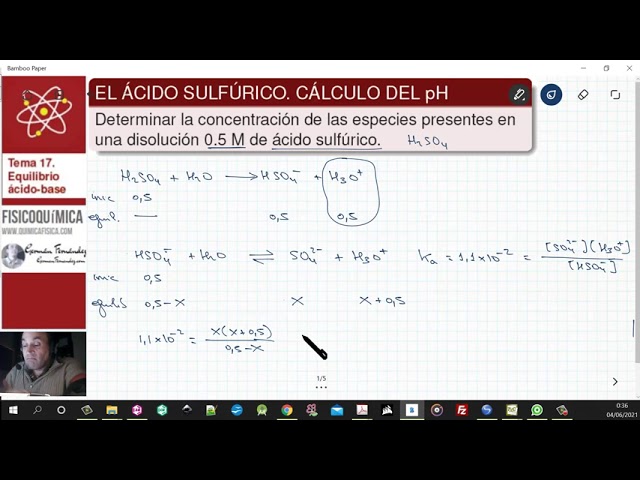 Bamboo Paper
EL ÁCIDO SULFÚRICO. CÁLCULO DEL pH
Determinar la concentración de las especies presentes en
una disolución 0.5 M de ácido sulfúrico. H₂SO₄
Tema 17.
Equilibrio
ácido-base
FISICOQUÍMICA
WWW.QUIMICAFISICA.COM
Germán Fernández
H₂SO₄ + H₂O ⟶ HSO₄⁻ + H₃O⁺
inic 0,5
equil. — 0,5 0,5
HSO₄⁻ + H₂O ⇌ SO₄²⁻ + H₃O⁺ Ka = 1,1x10⁻² = [SO₄²⁻][H₃O⁺] / [HSO₄⁻]
inic 0,5
equilib 0,5-x x x+0,5
1,1x10⁻² = x(x+0,5) / 0,5-x
1/5
0:36
04/06/2021